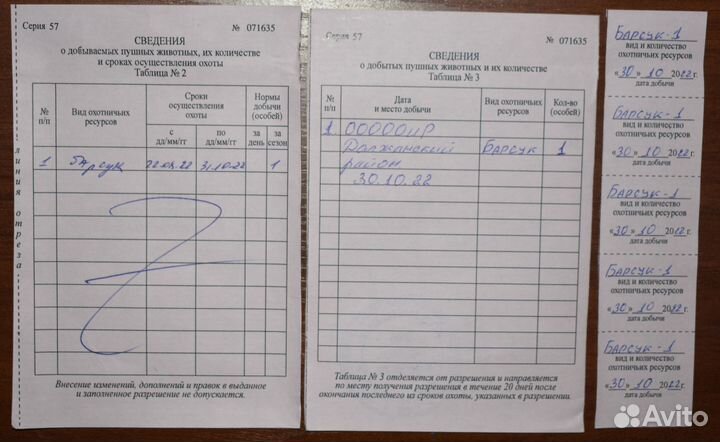 Серия 57
№ 071635
СВЕДЕНИЯ
о добываемых пушных животных, их количестве
и сроках осуществления охоты
Таблица № 2
№ п/п
Вид охотничьих ресурсов
Сроки осуществления охоты
Нормы добычи (особей)
с дд/мм/гг
по дд/мм/гг
за день
за сезон
1 Барсук 31.10.22 1
линия отреза
Внесение изменений, дополнений и правок в выданное
и заполненное разрешение не допускается.
Серия 57
№ 071635
СВЕДЕНИЯ
о добытых пушных животных и их количестве
Таблица № 3
№ п/п
Дата и место добычи
Вид охотничьих ресурсов
Кол-во (особей)
1
Должанский Барсук 1
район
30.10.22
Таблица № 3 отделяется от разрешения и направляется
по месту получения разрешения в течение 20 дней после
окончания последнего из сроков охоты, указанных в разрешении.
БАРСУК-1
вид и количество
охотничьих ресурсов
«30» 10 2022 г.
дата добычи
БАРСУК-1
вид и количество
охотничьих ресурсов
«30» 10 2022 г.
дата добычи
БАРСУК-1
вид и количество
охотничьих ресурсов
«30» 10 2022 г.
дата добычи
БАРСУК-1
вид и количество
охотничьих ресурсов
«30» 10 2022 г.
дата добычи
БАРСУК-1
вид и количество
охотничьих ресурсов
«30» 10 2022 г.
дата добычи
Avito